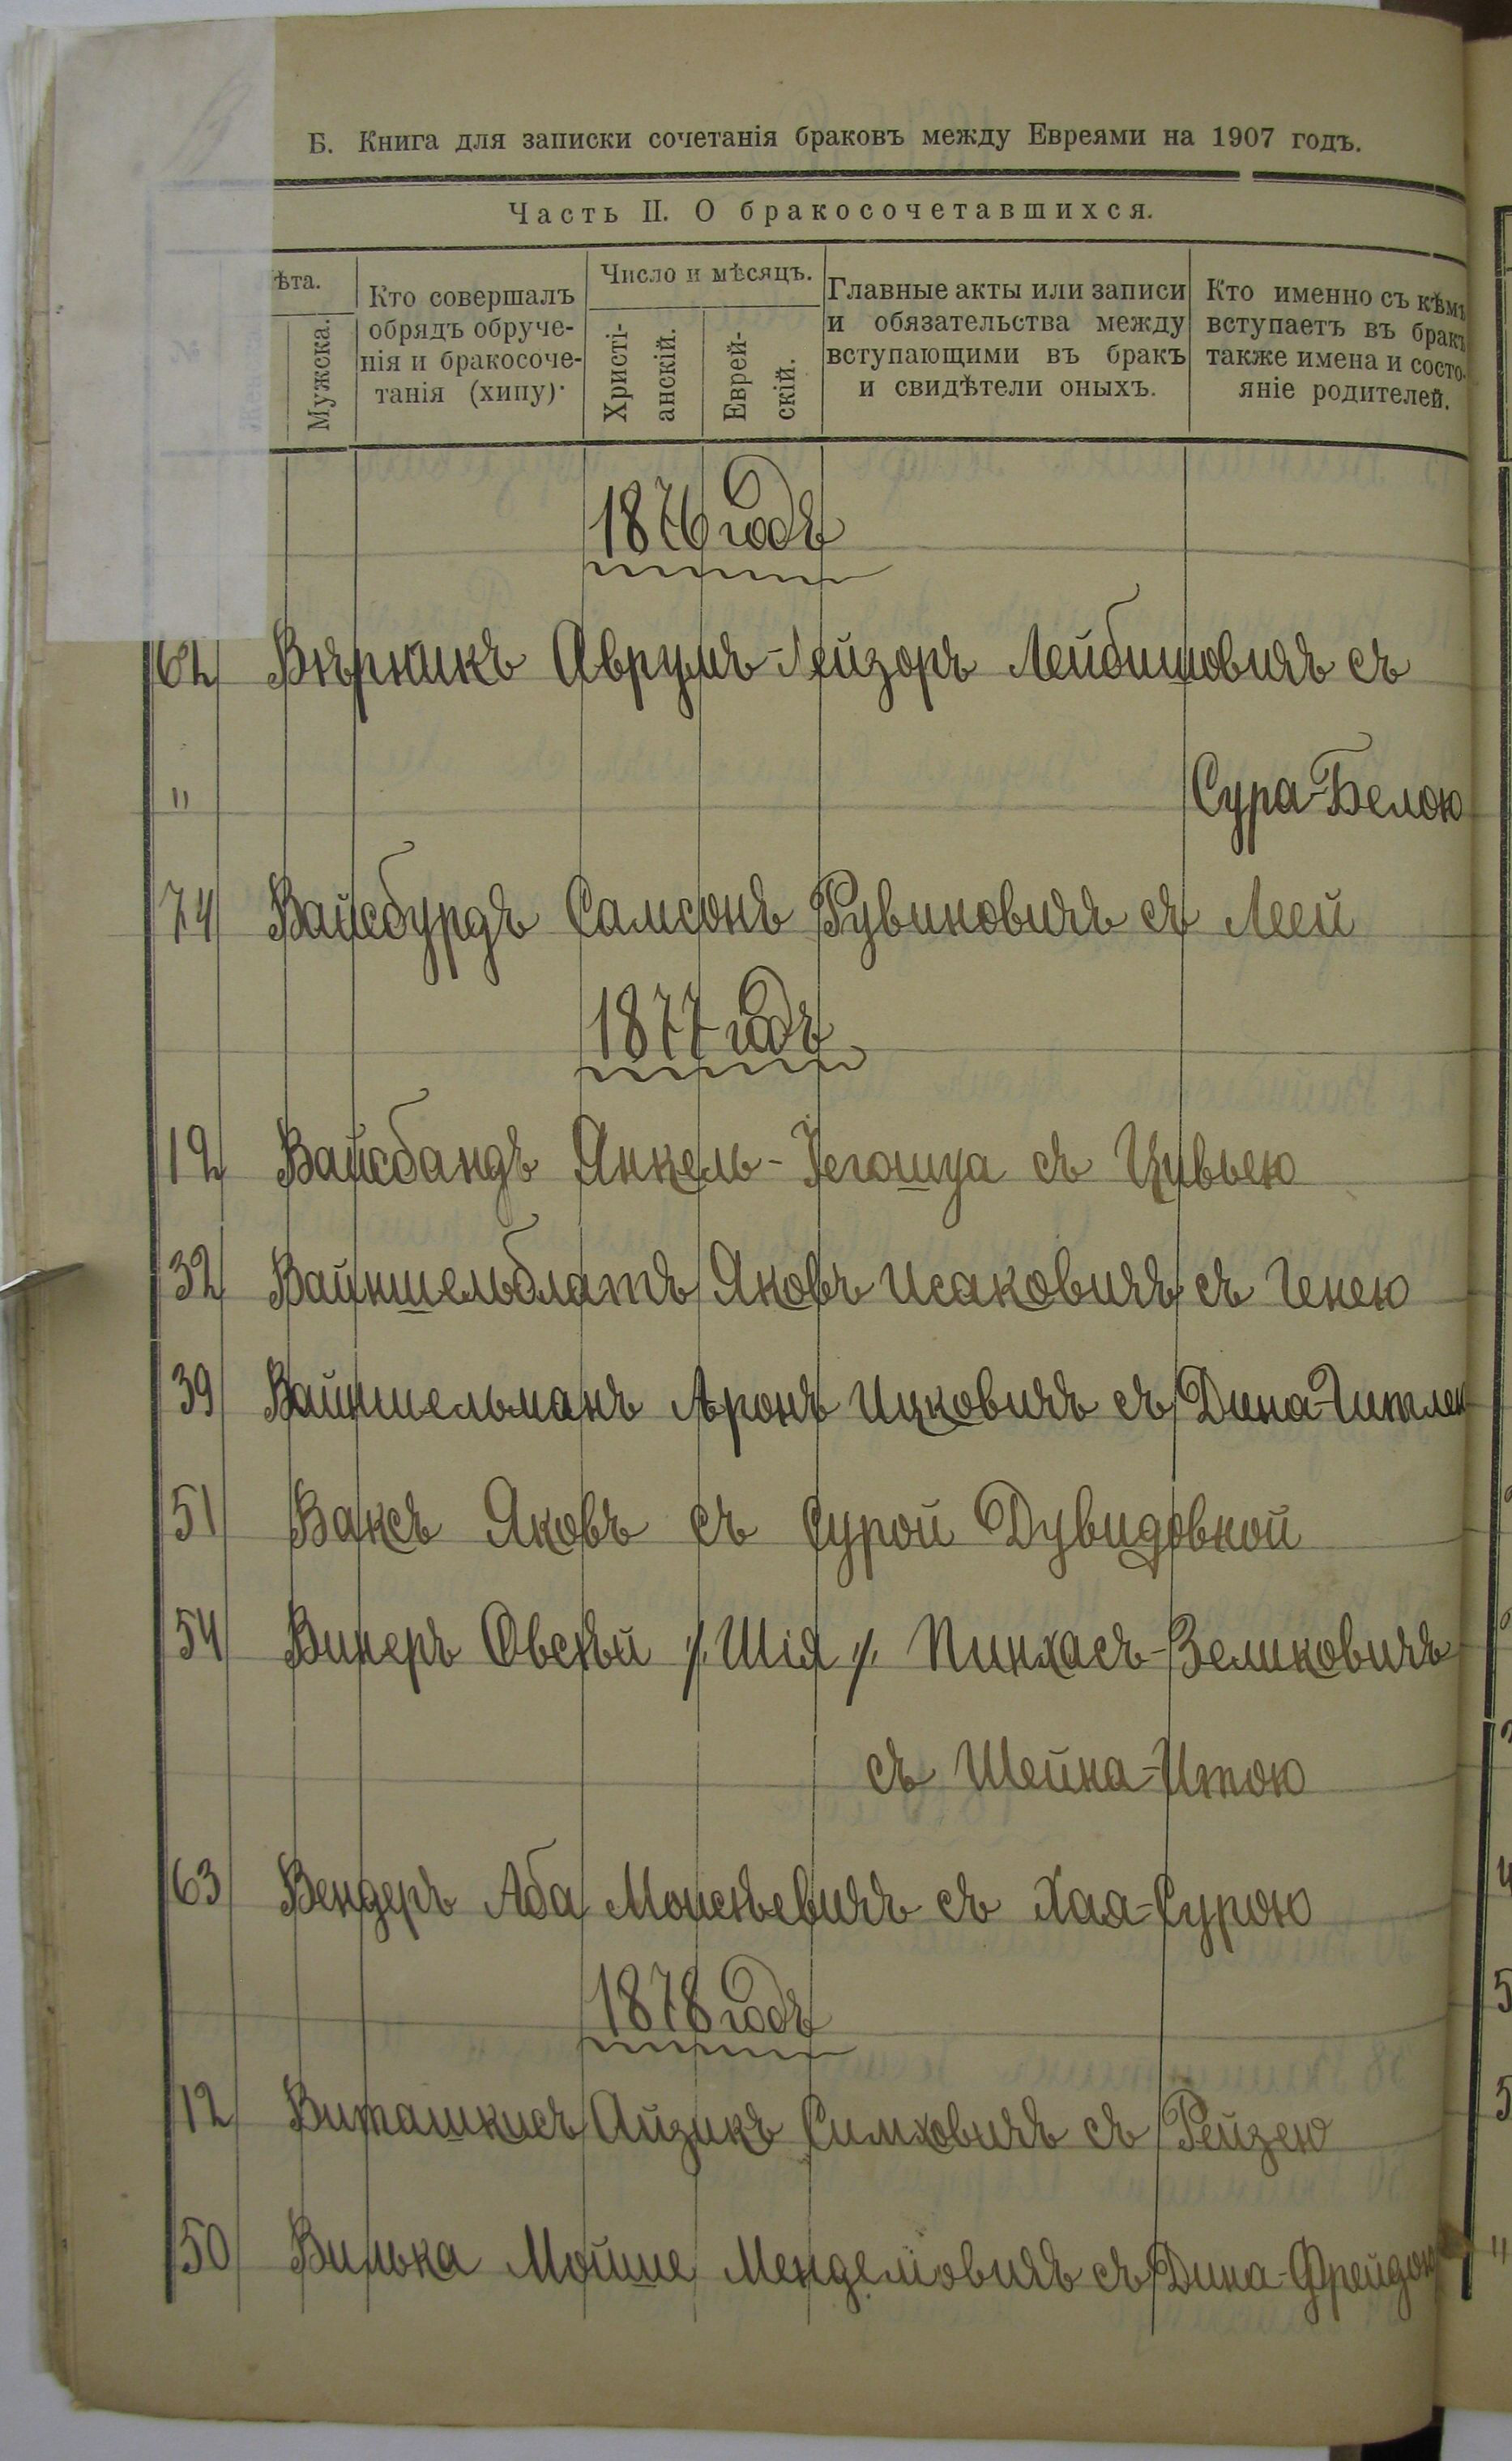 Б. Книга для записки сочетанія браковъ между Евреями на 1907 годъ.
Часть II. О бракосочетавшихся.
ѣта.
Мужска.
Кто совершалъ
обрядъ обруче-
нія и бракосоче-
танія (хипу).
Число и мѣсяцъ.
Христі-
анскій.
Еврей-
скій.
Главные акты или записи
и обязательства между
вступающими въ бракъ
и свидѣтели оныхъ.
Кто именно съ кѣмъ
вступаетъ въ бракъ
также имена и состо-
яніе родителей.
1876 годъ
62 Вѣрникъ Аврумъ-Лейзоръ Лейбишовичъ съ
" Сура-Белою
74 Вайсбурдъ Самсонъ Рувиновичъ съ Леей
1877 годъ
12 Вайсбандъ Янкель-Іегошуа съ Цивьею
32 Вайншельблатъ Яковъ Исаковичъ съ Генею
39 Вайншельманъ Аронъ Ицковичъ съ Дина-Гитлею
51 Ваксъ Яковъ съ Сурой Дувидовной
54 Винеръ Овсѣй /. Шія /. Пинхасъ-Зеликовичъ
съ Шейна-Итою
63 Вендеръ Аба Моисѣевичъ съ Хая-Сурою
1878 годъ
12 Виташкисъ Айзикъ Симховичъ съ Рейзею
50 Вилька Мойше Менделіовичъ съ Дина-Фрейдою